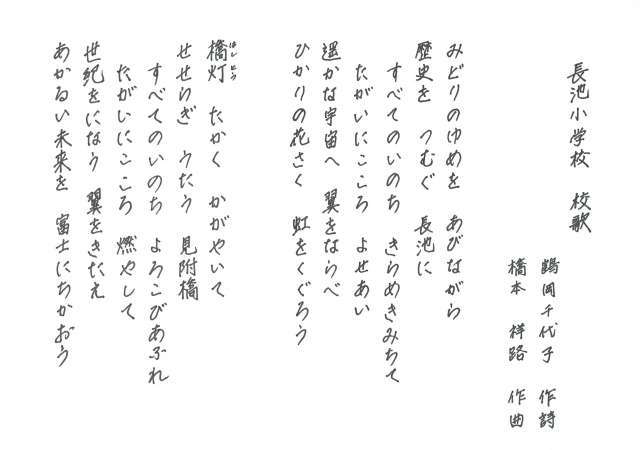 長池小学校　校歌
鶴岡千代子　作詩
橋本　祥路　作曲
みどりのゆめを　あびながら
歴史を　つむぐ　長池に
すべてのいのち　きらめきみちて
たがいにこころ　よせあい
遥かな宇宙へ　翼をならべ
ひかりの花さく　虹をくぐろう
橋灯　たかく　かがやいて
はし　とう
せせらぎ　うたう　見附橋
すべてのいのち　よろこびあふれ
たがいにこころ　燃やして
世紀をになう　翼をきたえ
あかるい未来を　富士にちかおう